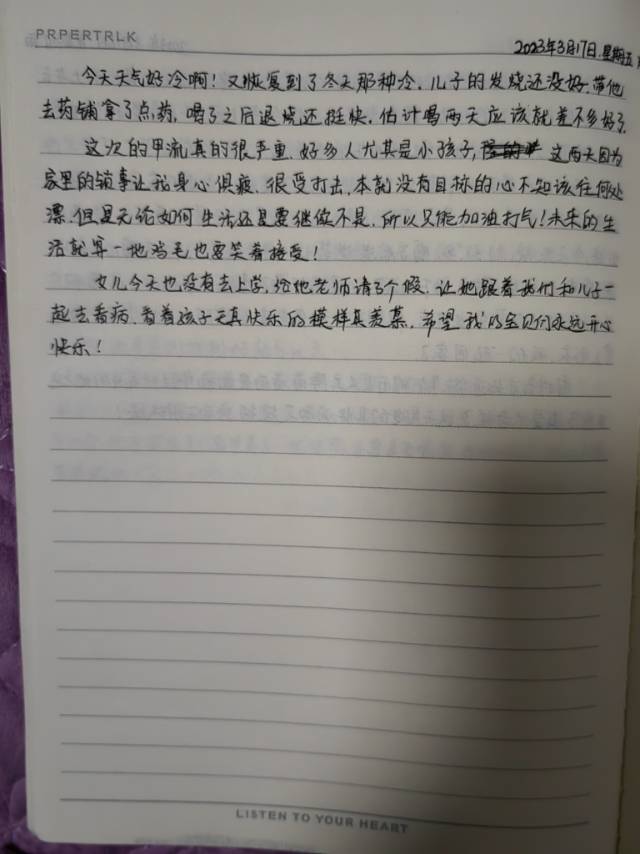 PRPERTRLK
2023年3月17日.星期五
今天天气好冷啊！又恢复到了冬天那种冷，儿子的发烧还没好.带他
去药铺拿了点药，喝了之后退烧还挺快，估计喝两天应该就差不多好了.
这次的甲流真的很严重，好多人尤其是小孩子, 这两天因为
家里的锁事让我身心俱疲，很受打击，本就没有目标的心不知该往何处
漂.但是无论如何生活还是要继做不是，所以只能加油打气！未来的生
活就算一地鸡毛也要笑着接受！
女儿今天也没有去上学，给他老师请了个假，让她跟着我们和儿子一
起去看病，看着孩子天真快乐的模样真羡慕，希望我的宝贝们永远开心
快乐！
LISTEN TO YOUR HEART